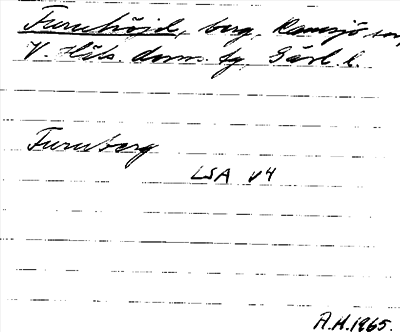 Furuhöjd, berg, Ramsjö sn,
V. Häls. doms. tg Gävl. l.
Furuberg
LSA V4
A.H. 1965.